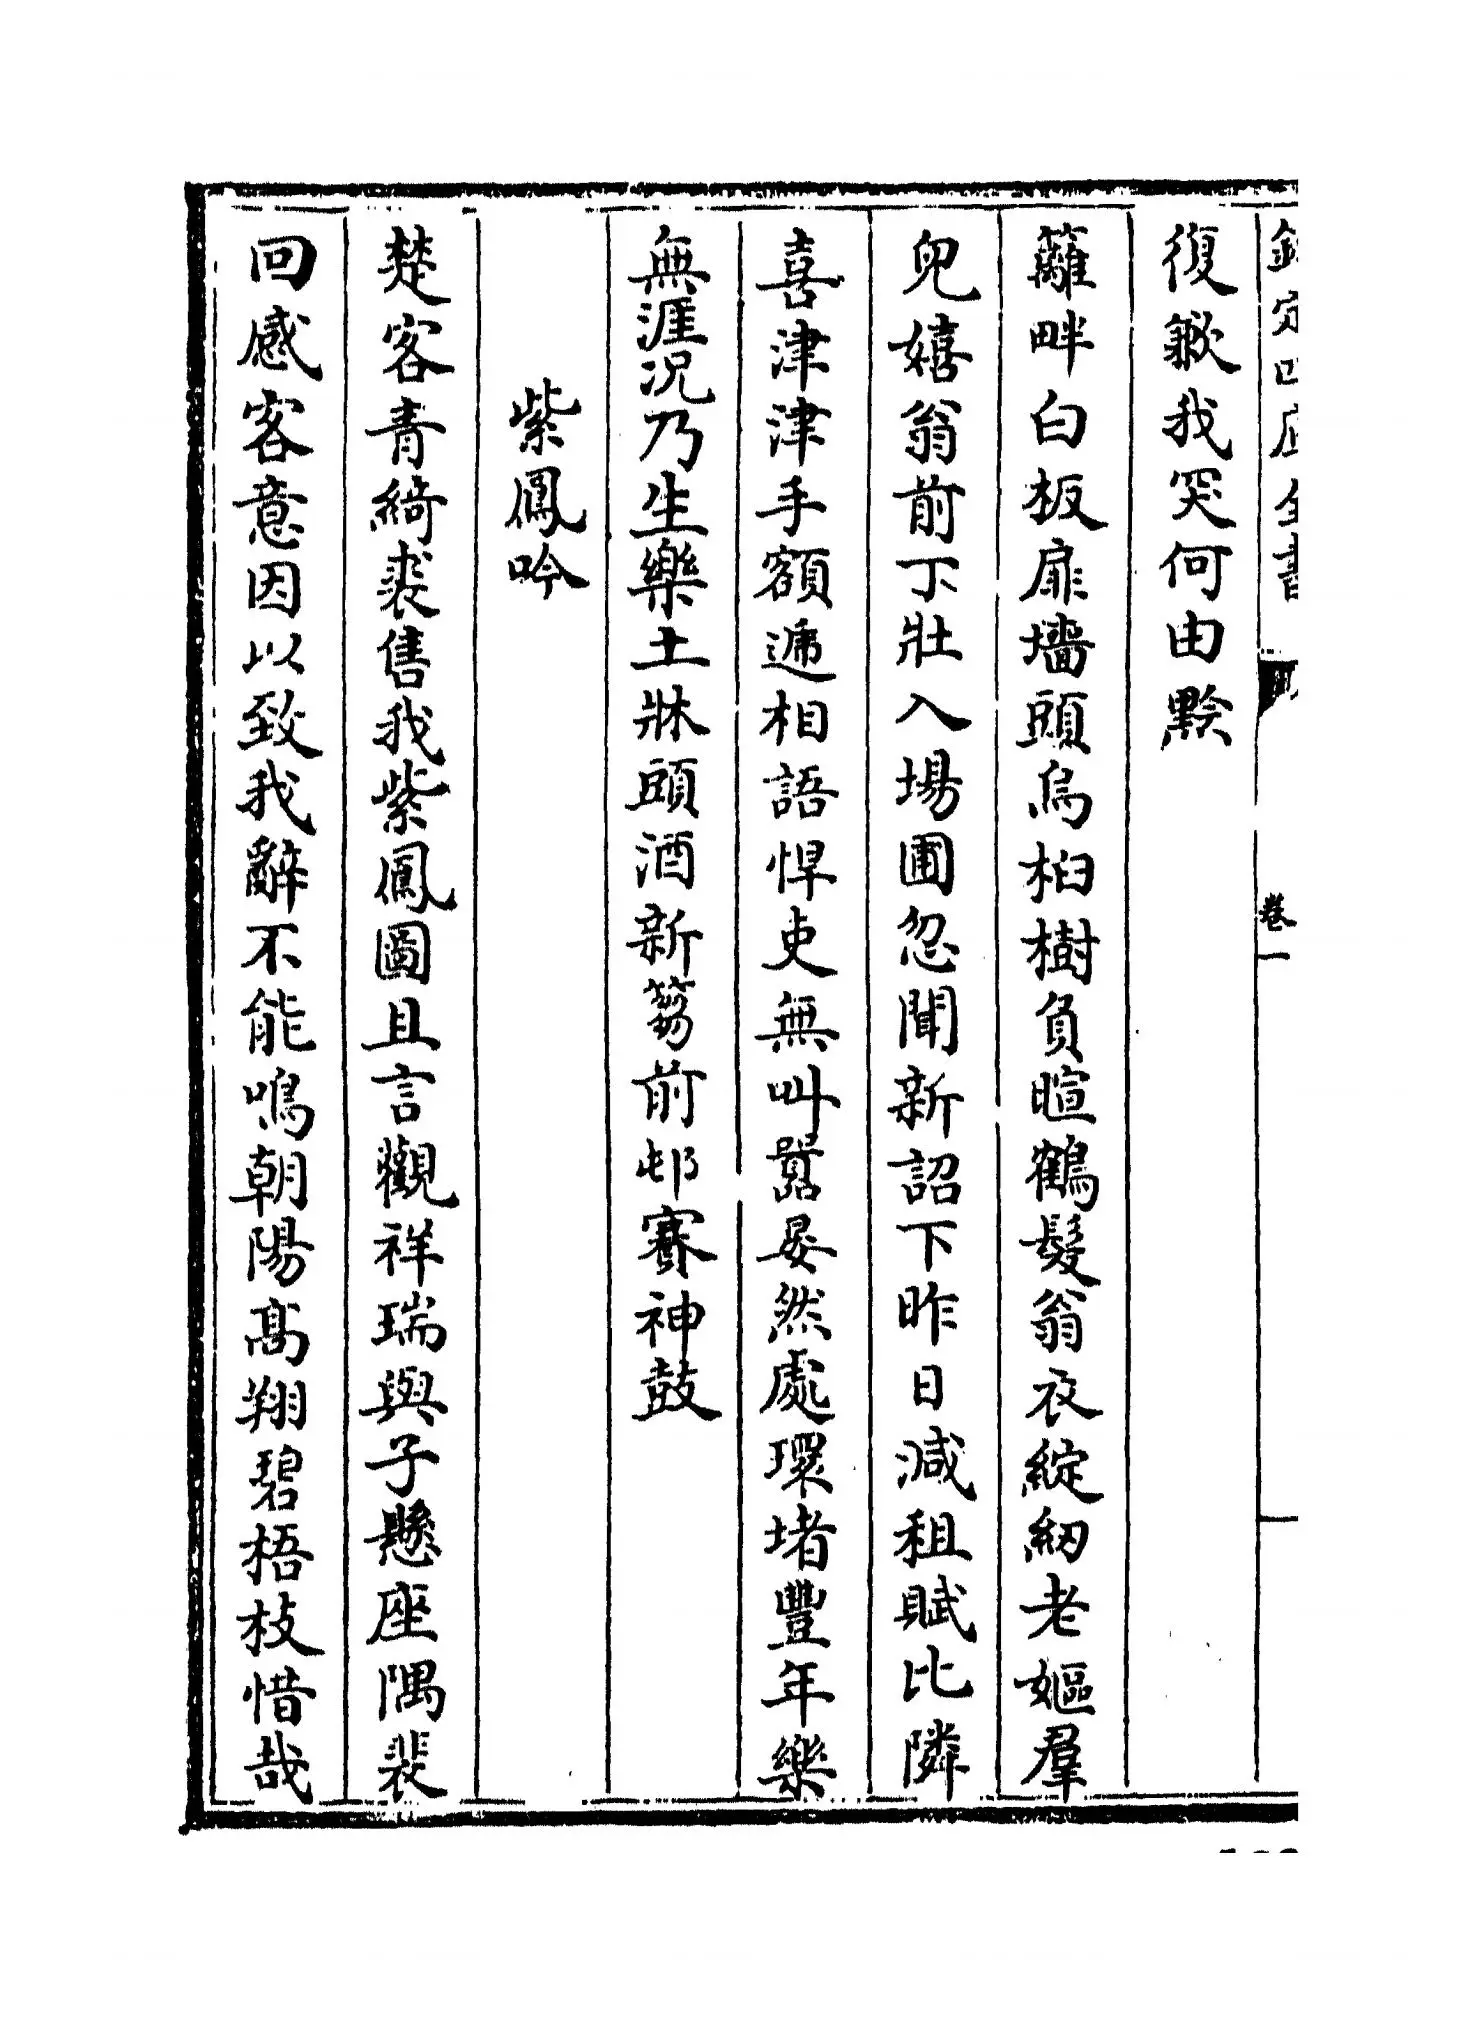 欽定四庫全書 卷一
復我突何由黔
籬畔白板扉墻頭烏桕樹負暄鶴髮翁衣綻紉老嫗羣
兒嬉翁前丁壯入場圃忽聞新詔下昨日減租賦比隣
喜津津手額遞相語悍吏無叫囂晏然處環堵豐年樂
無涯况乃生樂土牀頭酒新篘前邨賽神鼓
紫鳳吟
楚客青綺裘售我紫鳳圖且言觀祥瑞與子懸座隅裴
回感客意因以致我辭不能鳴朝陽高翔碧梧枝惜哉